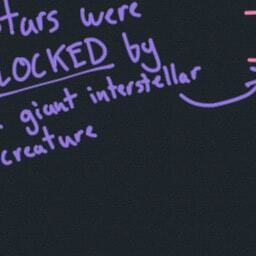 stars were
LOCKED by
giant interstellar
creature